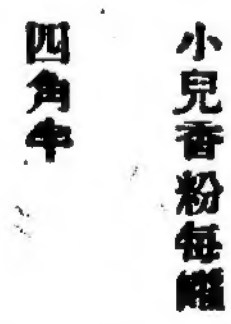 小兒香粉每罐
四角半